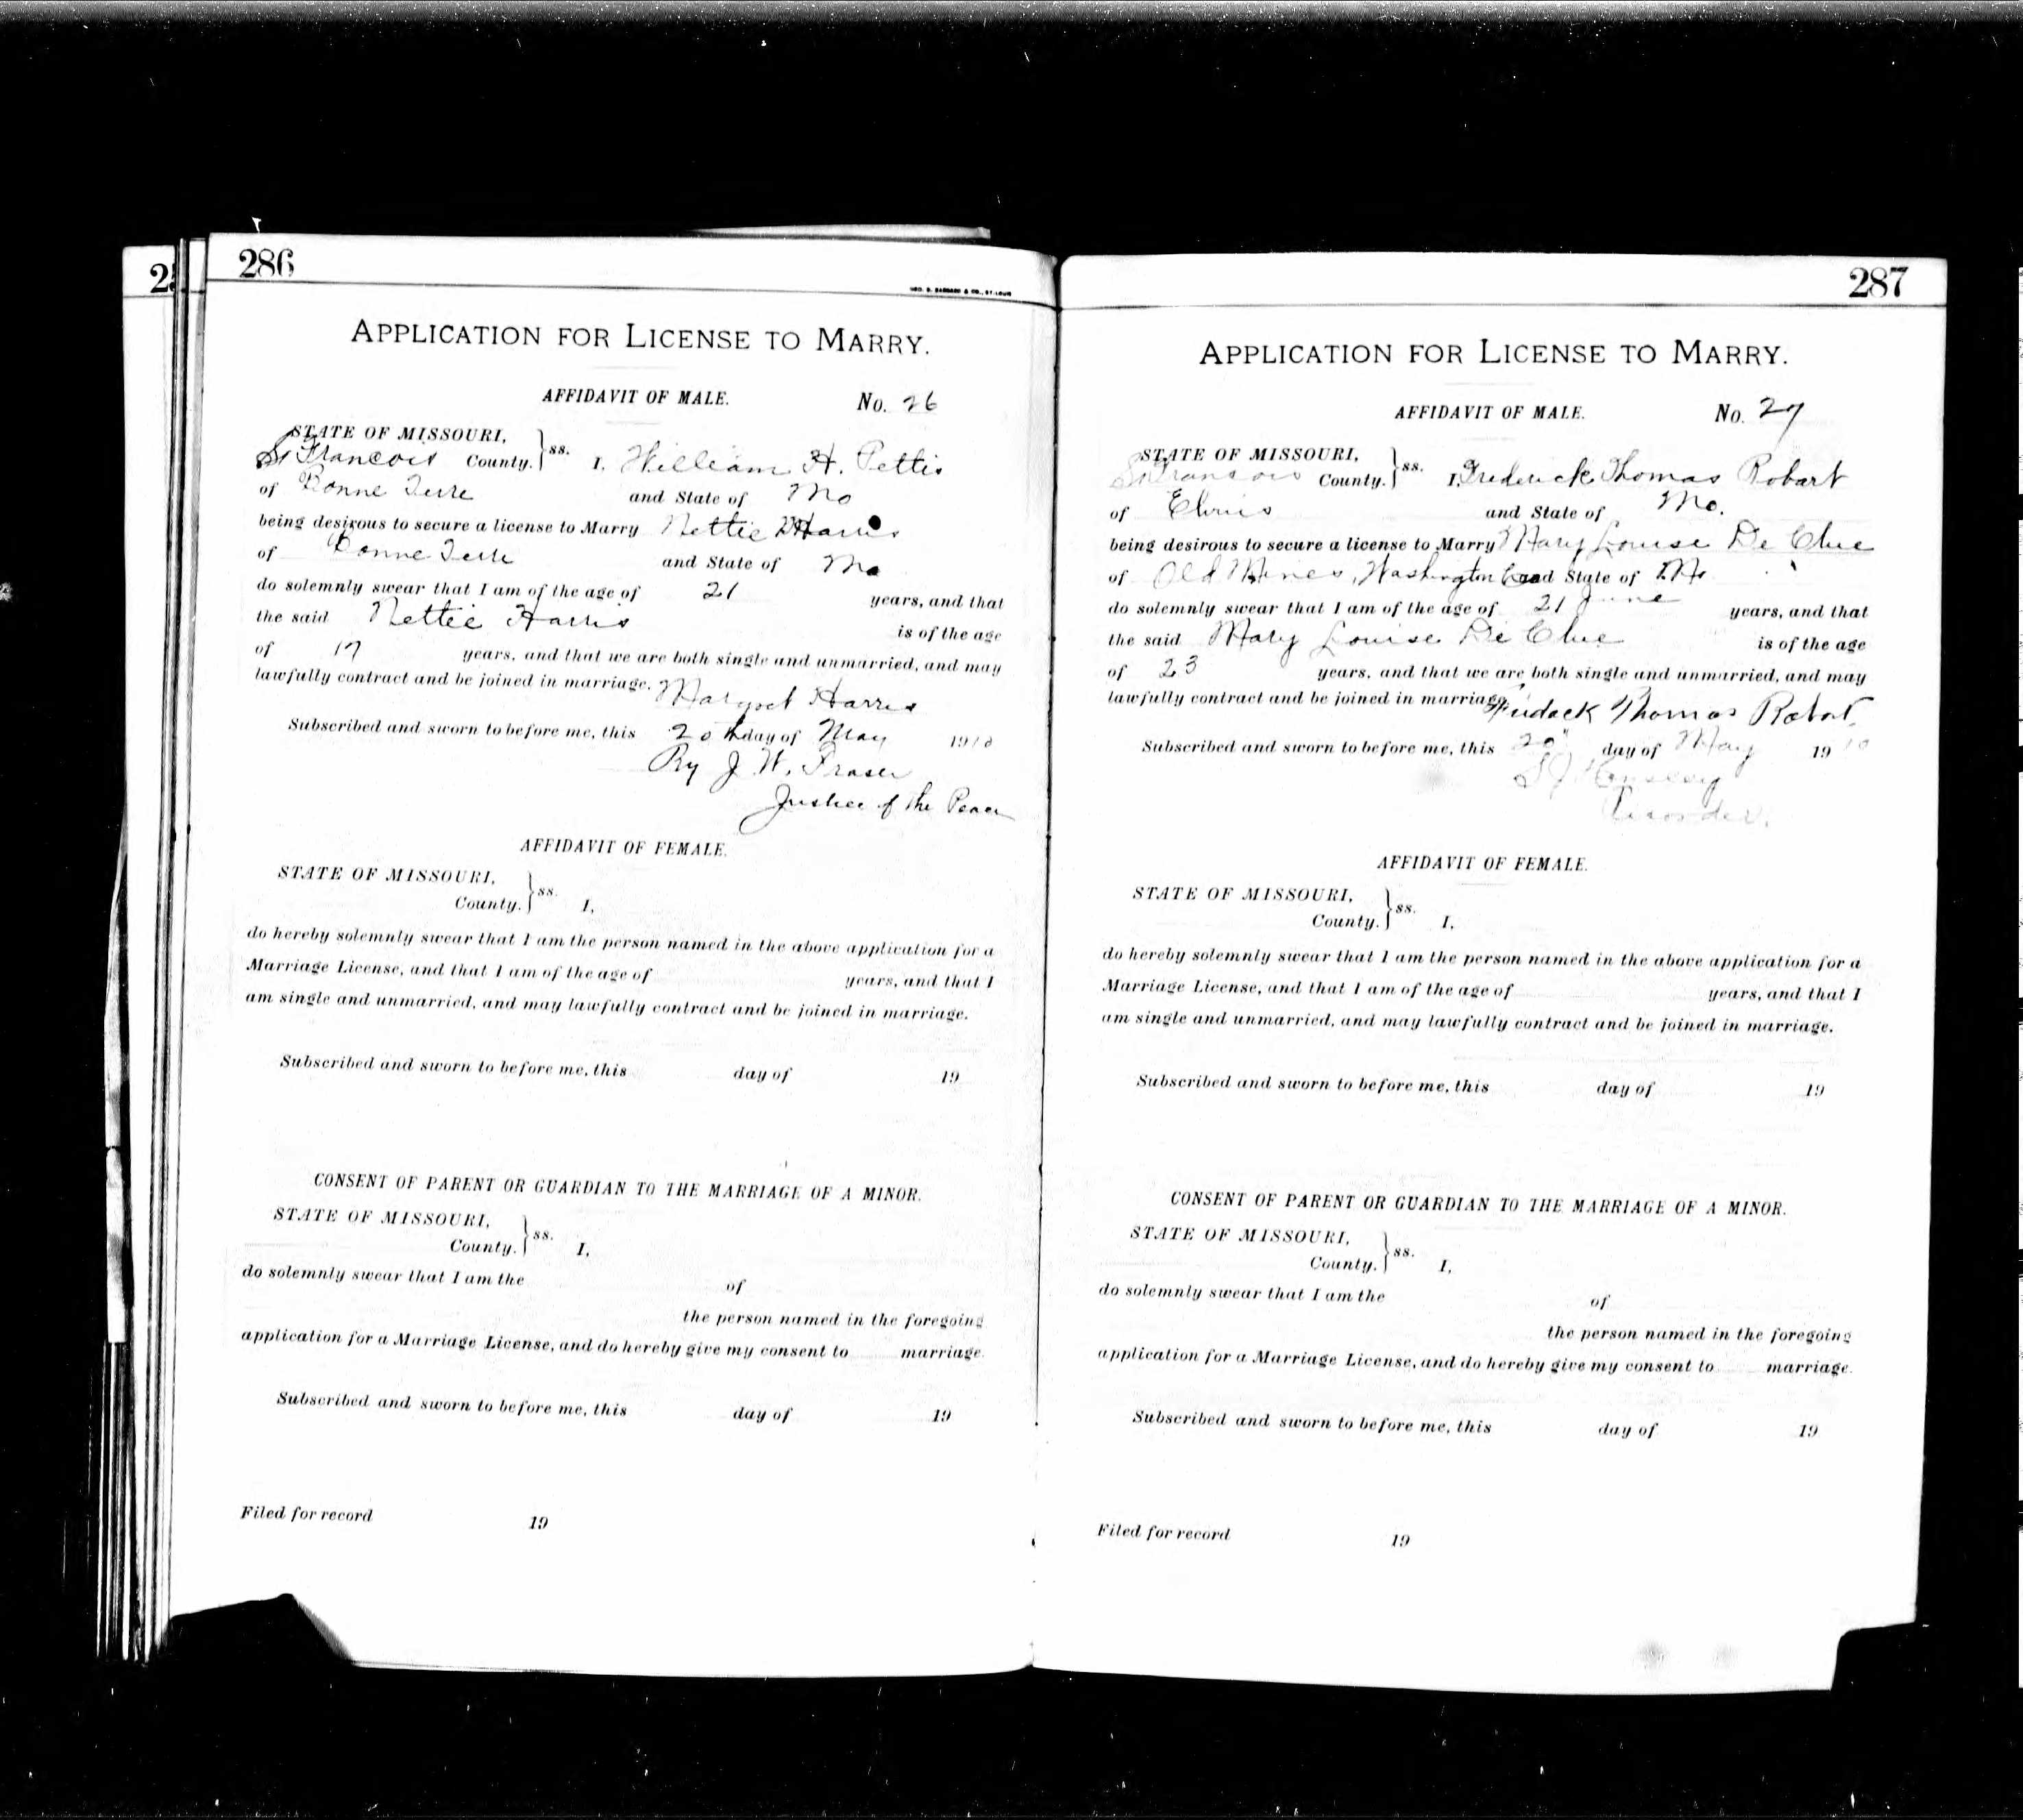 286
GEO. D. BARNARD & CO., ST. LOUIS
APPLICATION FOR LICENSE TO MARRY.
AFFIDAVIT OF MALE. No. 26
STATE OF MISSOURI,
St Francois County. } ss. I, William H. Pettis
of Bonne Terre and State of Mo
being desirous to secure a license to Marry Nettie Harris
of Bonne Terre and State of Mo
do solemnly swear that I am of the age of 21 years, and that
the said Nettie Harris is of the age
of 17 years, and that we are both single and unmarried, and may
lawfully contract and be joined in marriage. Margret Harris
Subscribed and sworn to before me, this 20th day of May 1910
By J. W. Fraser
Justice of the Peace
AFFIDAVIT OF FEMALE.
STATE OF MISSOURI,
County. } ss. I,
do hereby solemnly swear that I am the person named in the above application for a
Marriage License, and that I am of the age of years, and that I
am single and unmarried, and may lawfully contract and be joined in marriage.
Subscribed and sworn to before me, this day of 19
CONSENT OF PARENT OR GUARDIAN TO THE MARRIAGE OF A MINOR.
STATE OF MISSOURI,
County. } ss. I,
do solemnly swear that I am the of
the person named in the foregoing
application for a Marriage License, and do hereby give my consent to marriage.
Subscribed and sworn to before me, this day of 19
Filed for record 19
287
APPLICATION FOR LICENSE TO MARRY.
AFFIDAVIT OF MALE. No. 27
STATE OF MISSOURI,
St Francois County. } ss. I, Frederick Thomas Robart
of Elvins and State of Mo.
being desirous to secure a license to Marry Mary Louise De Clue
of Old Mines, Washington Co and State of Mo
do solemnly swear that I am of the age of 21 June years, and that
the said Mary Louise De Clue is of the age
of 23 years, and that we are both single and unmarried, and may
lawfully contract and be joined in marriage. Thomas Robart
Subscribed and sworn to before me, this 20" day of May 1910
Hensley
Recorder.
AFFIDAVIT OF FEMALE.
STATE OF MISSOURI,
County. } ss. I,
do hereby solemnly swear that I am the person named in the above application for a
Marriage License, and that I am of the age of years, and that I
am single and unmarried, and may lawfully contract and be joined in marriage.
Subscribed and sworn to before me, this day of 19
CONSENT OF PARENT OR GUARDIAN TO THE MARRIAGE OF A MINOR.
STATE OF MISSOURI,
County. } ss. I,
do solemnly swear that I am the of
the person named in the foregoing
application for a Marriage License, and do hereby give my consent to marriage.
Subscribed and sworn to before me, this day of 19
Filed for record 19